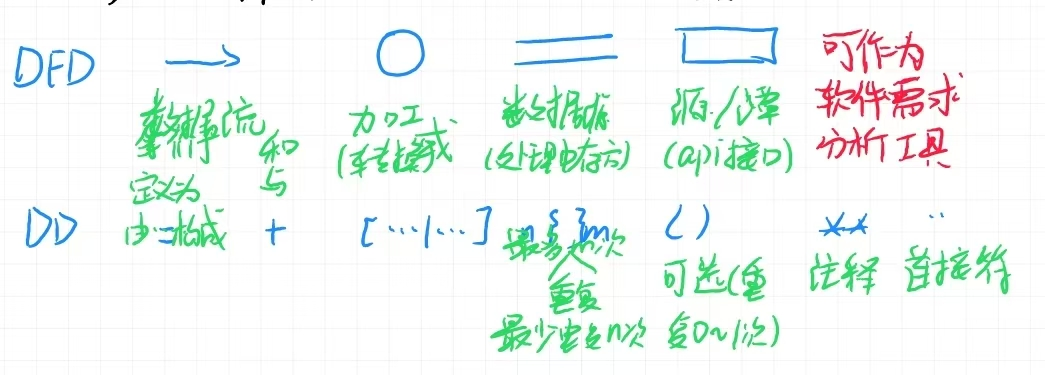 DFD → ○ ═ ▭ 可作为
软件需求
分析工具
数据流 加工 数据存 源/潭
(api接口)
和
与
定义为
DD 由 构成 + […|…] n{ }m ( ) ** ..
最多m次
重复
最少重复n次
可选(重
复0~1次)
注释 连接符